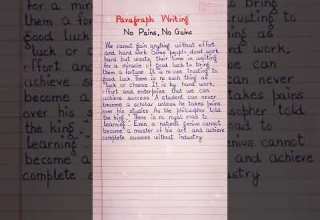 Paragraph Writing
No Pains, No Gains
We cannot gain anything without effort
and hard work. Some people dread work
hard but waste their time in waiting
for a miracle of good luck to bring
them a fortune. It is no use trusting to
good luck. There is no such thing as
"luck or chance. It is by hard work,
effort and enterprise that we can
achieve success. A student can never
become a scholar unless he takes pains
over his studies. As the philosopher told
the king, "There is no royal road to
learning." Even a natural genius cannot
become a master of his art and achieve
complete success without industry.